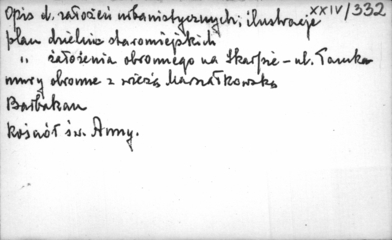 XXIV/332
Opis d. założeń urbanistycznych; ilustracje
plan dzielnic staromiejskich
" założenia obronnego na Skarpie - ul. Tamka
mury obronne z wieżą Marszałkowską
Barbakan
kościół św. Anny.